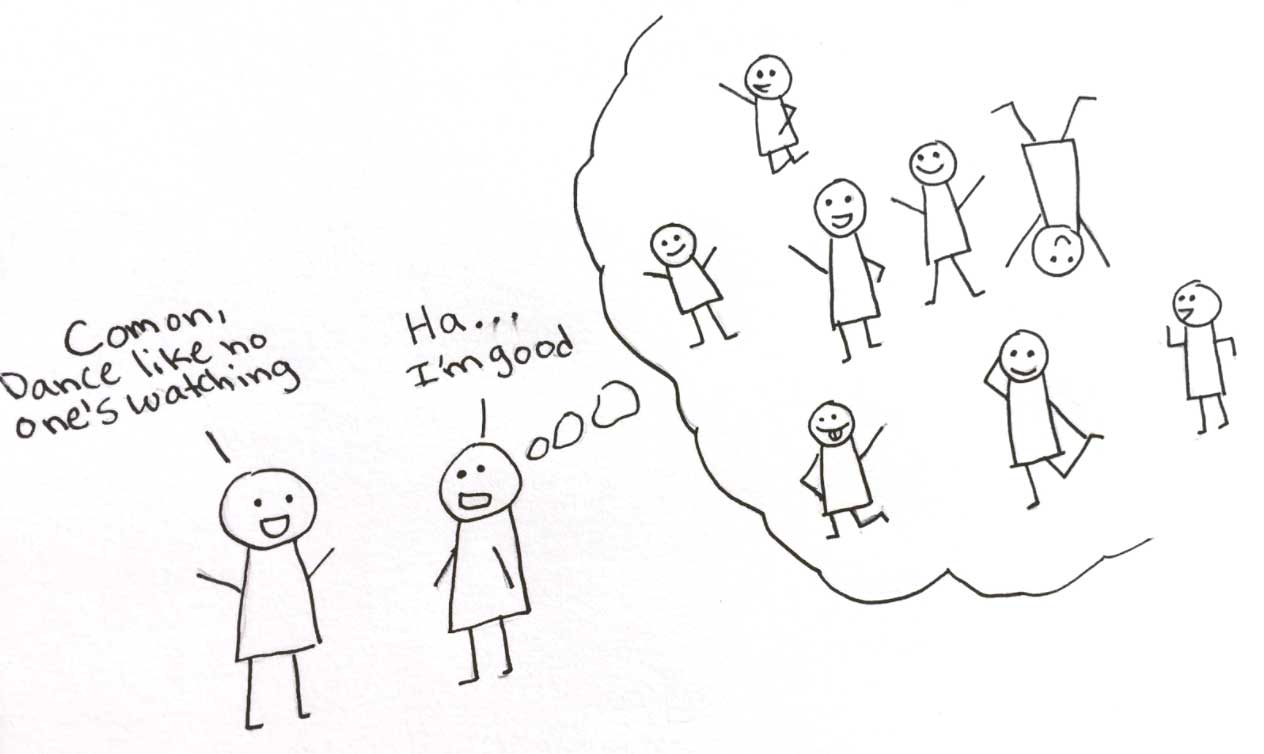 Comon,
Dance like no
one's watching
Ha...
I'm good